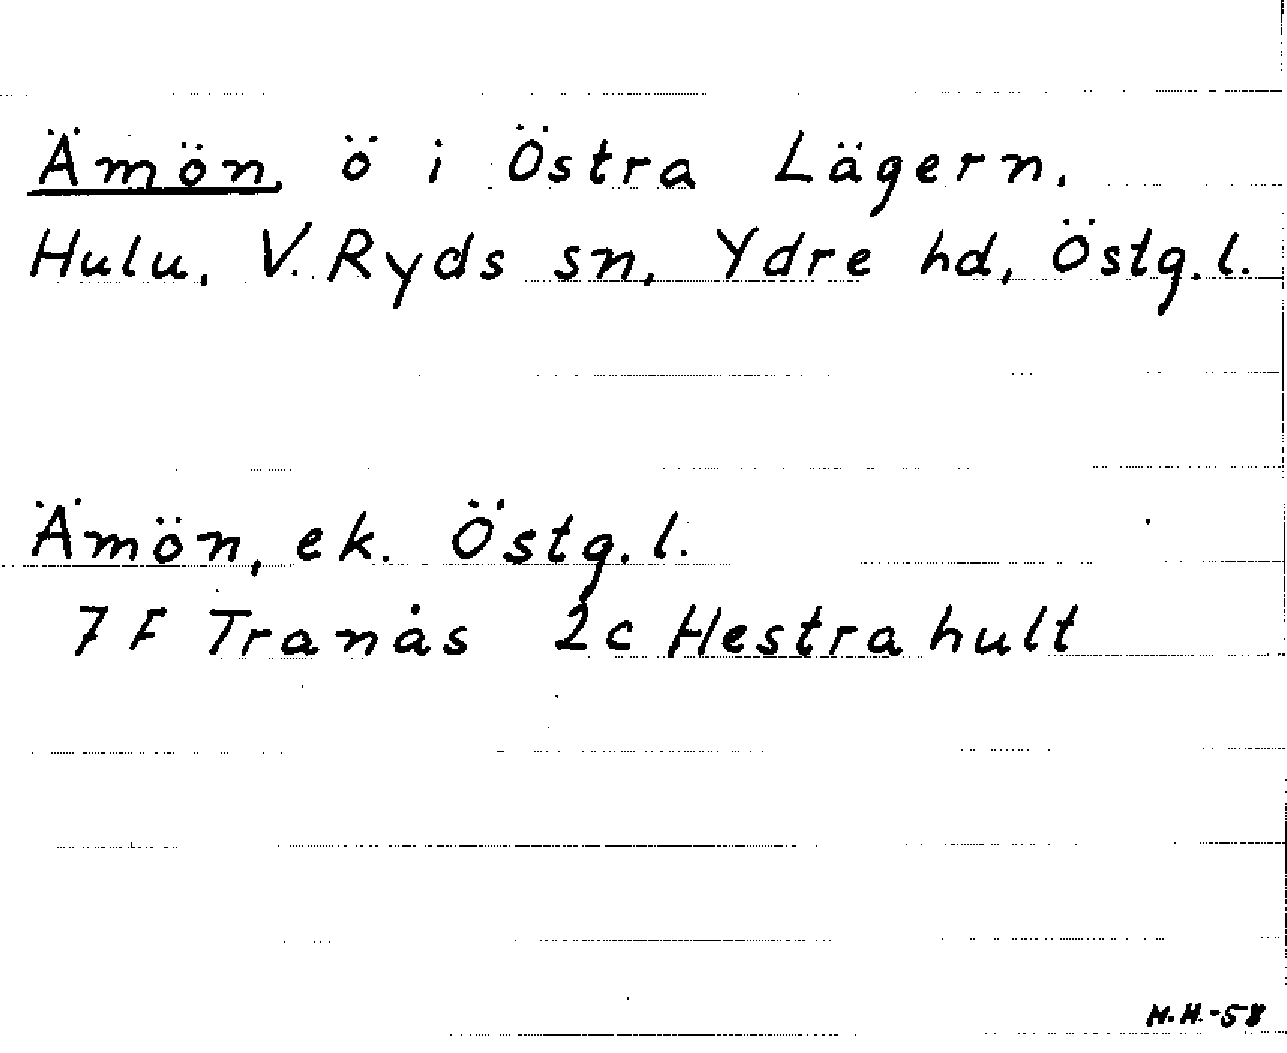 Ämön, ö i Östra Lägern,
Hulu, V. Ryds sn, Ydre hd, Östg. l.
Ämön, ek. Östg. l.
7 F Tranås 2c Hestrahult
H.H.-58